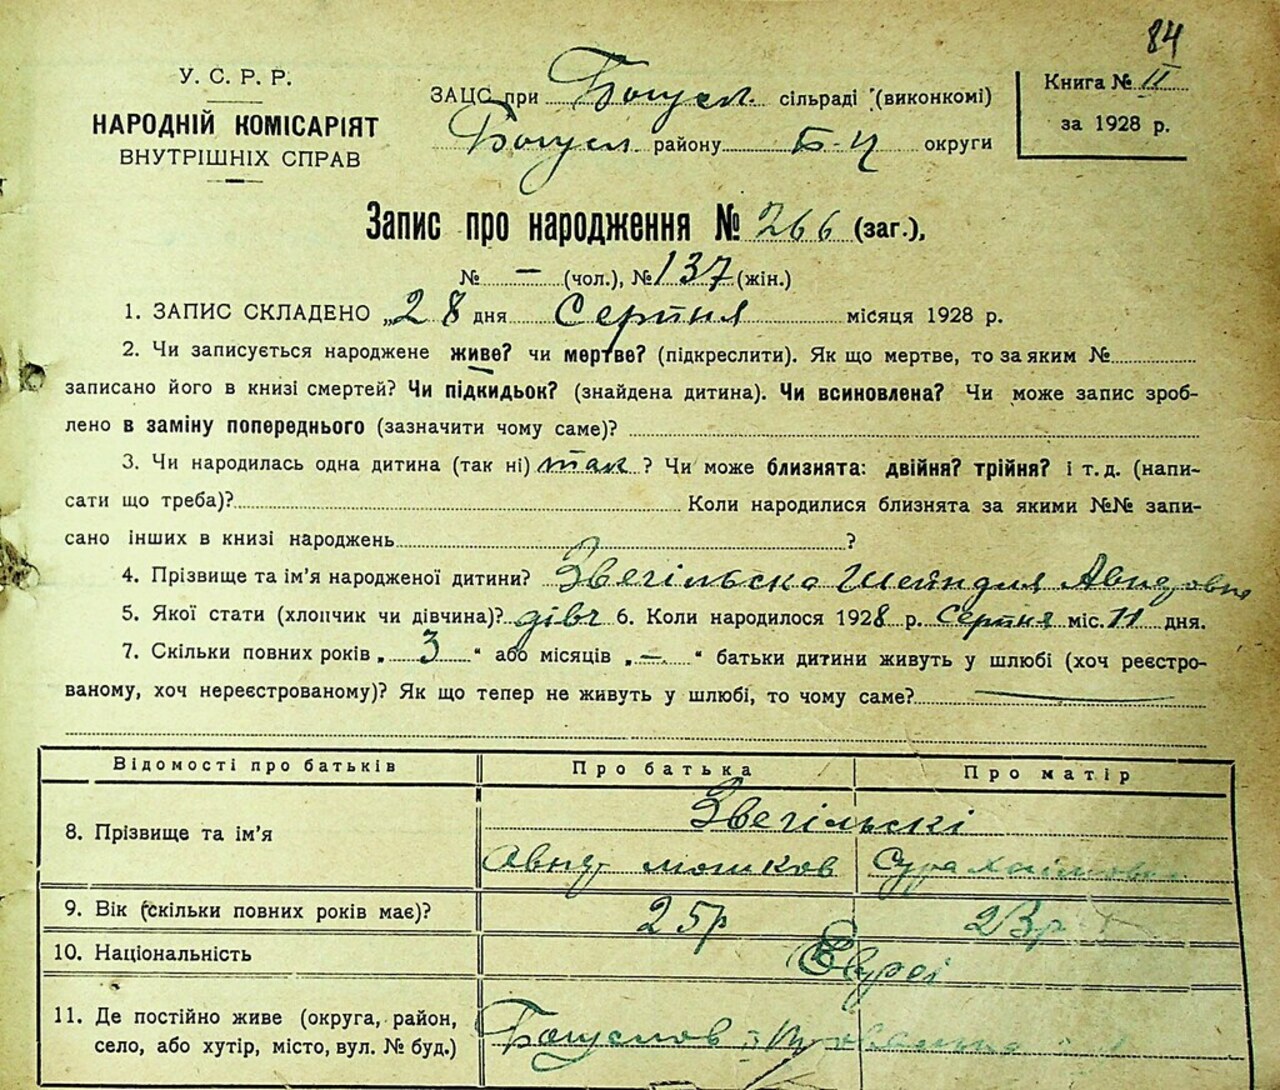 84
У. С. Р. Р.
НАРОДНІЙ КОМІСАРІЯТ
ВНУТРІШНІХ СПРАВ
ЗАЦС при Богусл. сільраді (виконкомі)
Богусл. району Б-Ц округи
Книга № II
за 1928 р.
Запис про народження № 266 (заг.),
№ — (чол.), № 137 (жін.)
1. ЗАПИС СКЛАДЕНО „28 дня Серпня місяця 1928 р.
2. Чи записується народжене живе? чи мертве? (підкреслити). Як що мертве, то за яким №
записано його в книзі смертей? Чи підкидьок? (знайдена дитина). Чи всиновлена? Чи може запис зроб-
лено в заміну попереднього (зазначити чому саме)?
3. Чи народилась одна дитина (так ні) так ? Чи може близнята: двійня? трійня? і т. д. (напи-
сати що треба)? Коли народилися близнята за якими №№ запи-
сано інших в книзі народжень ?
4. Прізвище та ім'я народженої дитини? Звегільска Шейндля Авидовна
5. Якої стати (хлопчик чи дівчина)? дівч 6. Коли народилося 1928 р. Серпня міс. 11 дня.
7. Скільки повних років „ 3 “ або місяців „ — “ батьки дитини живуть у шлюбі (хоч реєстро-
ваному, хоч нереєстрованому)? Як що тепер не живуть у шлюбі, то чому саме? —
Відомості про батьків Про батька Про матір
8. Прізвище та ім'я Звегільскі
Авид Мошков Сура Хаімовна
9. Вік (скільки повних років має)? 25р 23р
10. Національність Євреі
11. Де постійно живе (округа, район,
село, або хутір, місто, вул. № буд.) Богуслов